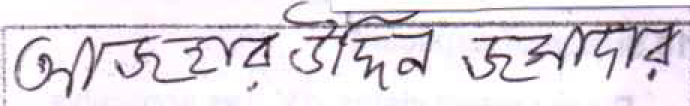 আজহার উদ্দিন জমাদার